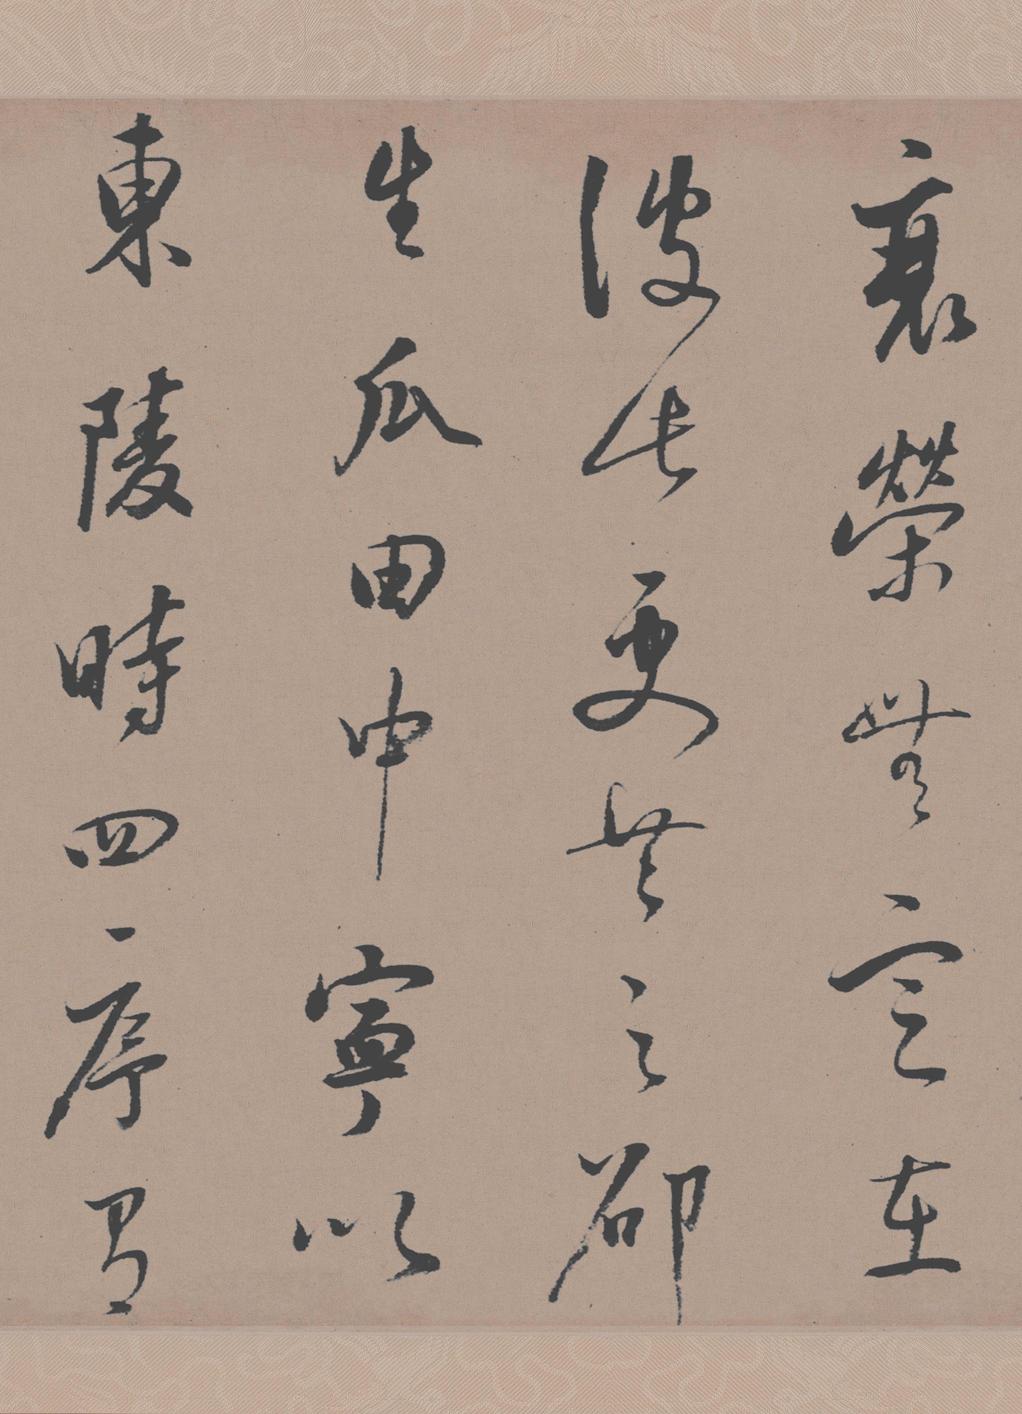 衰榮無定在
彼此更共之邵
生瓜田中寧以
東陵時四序